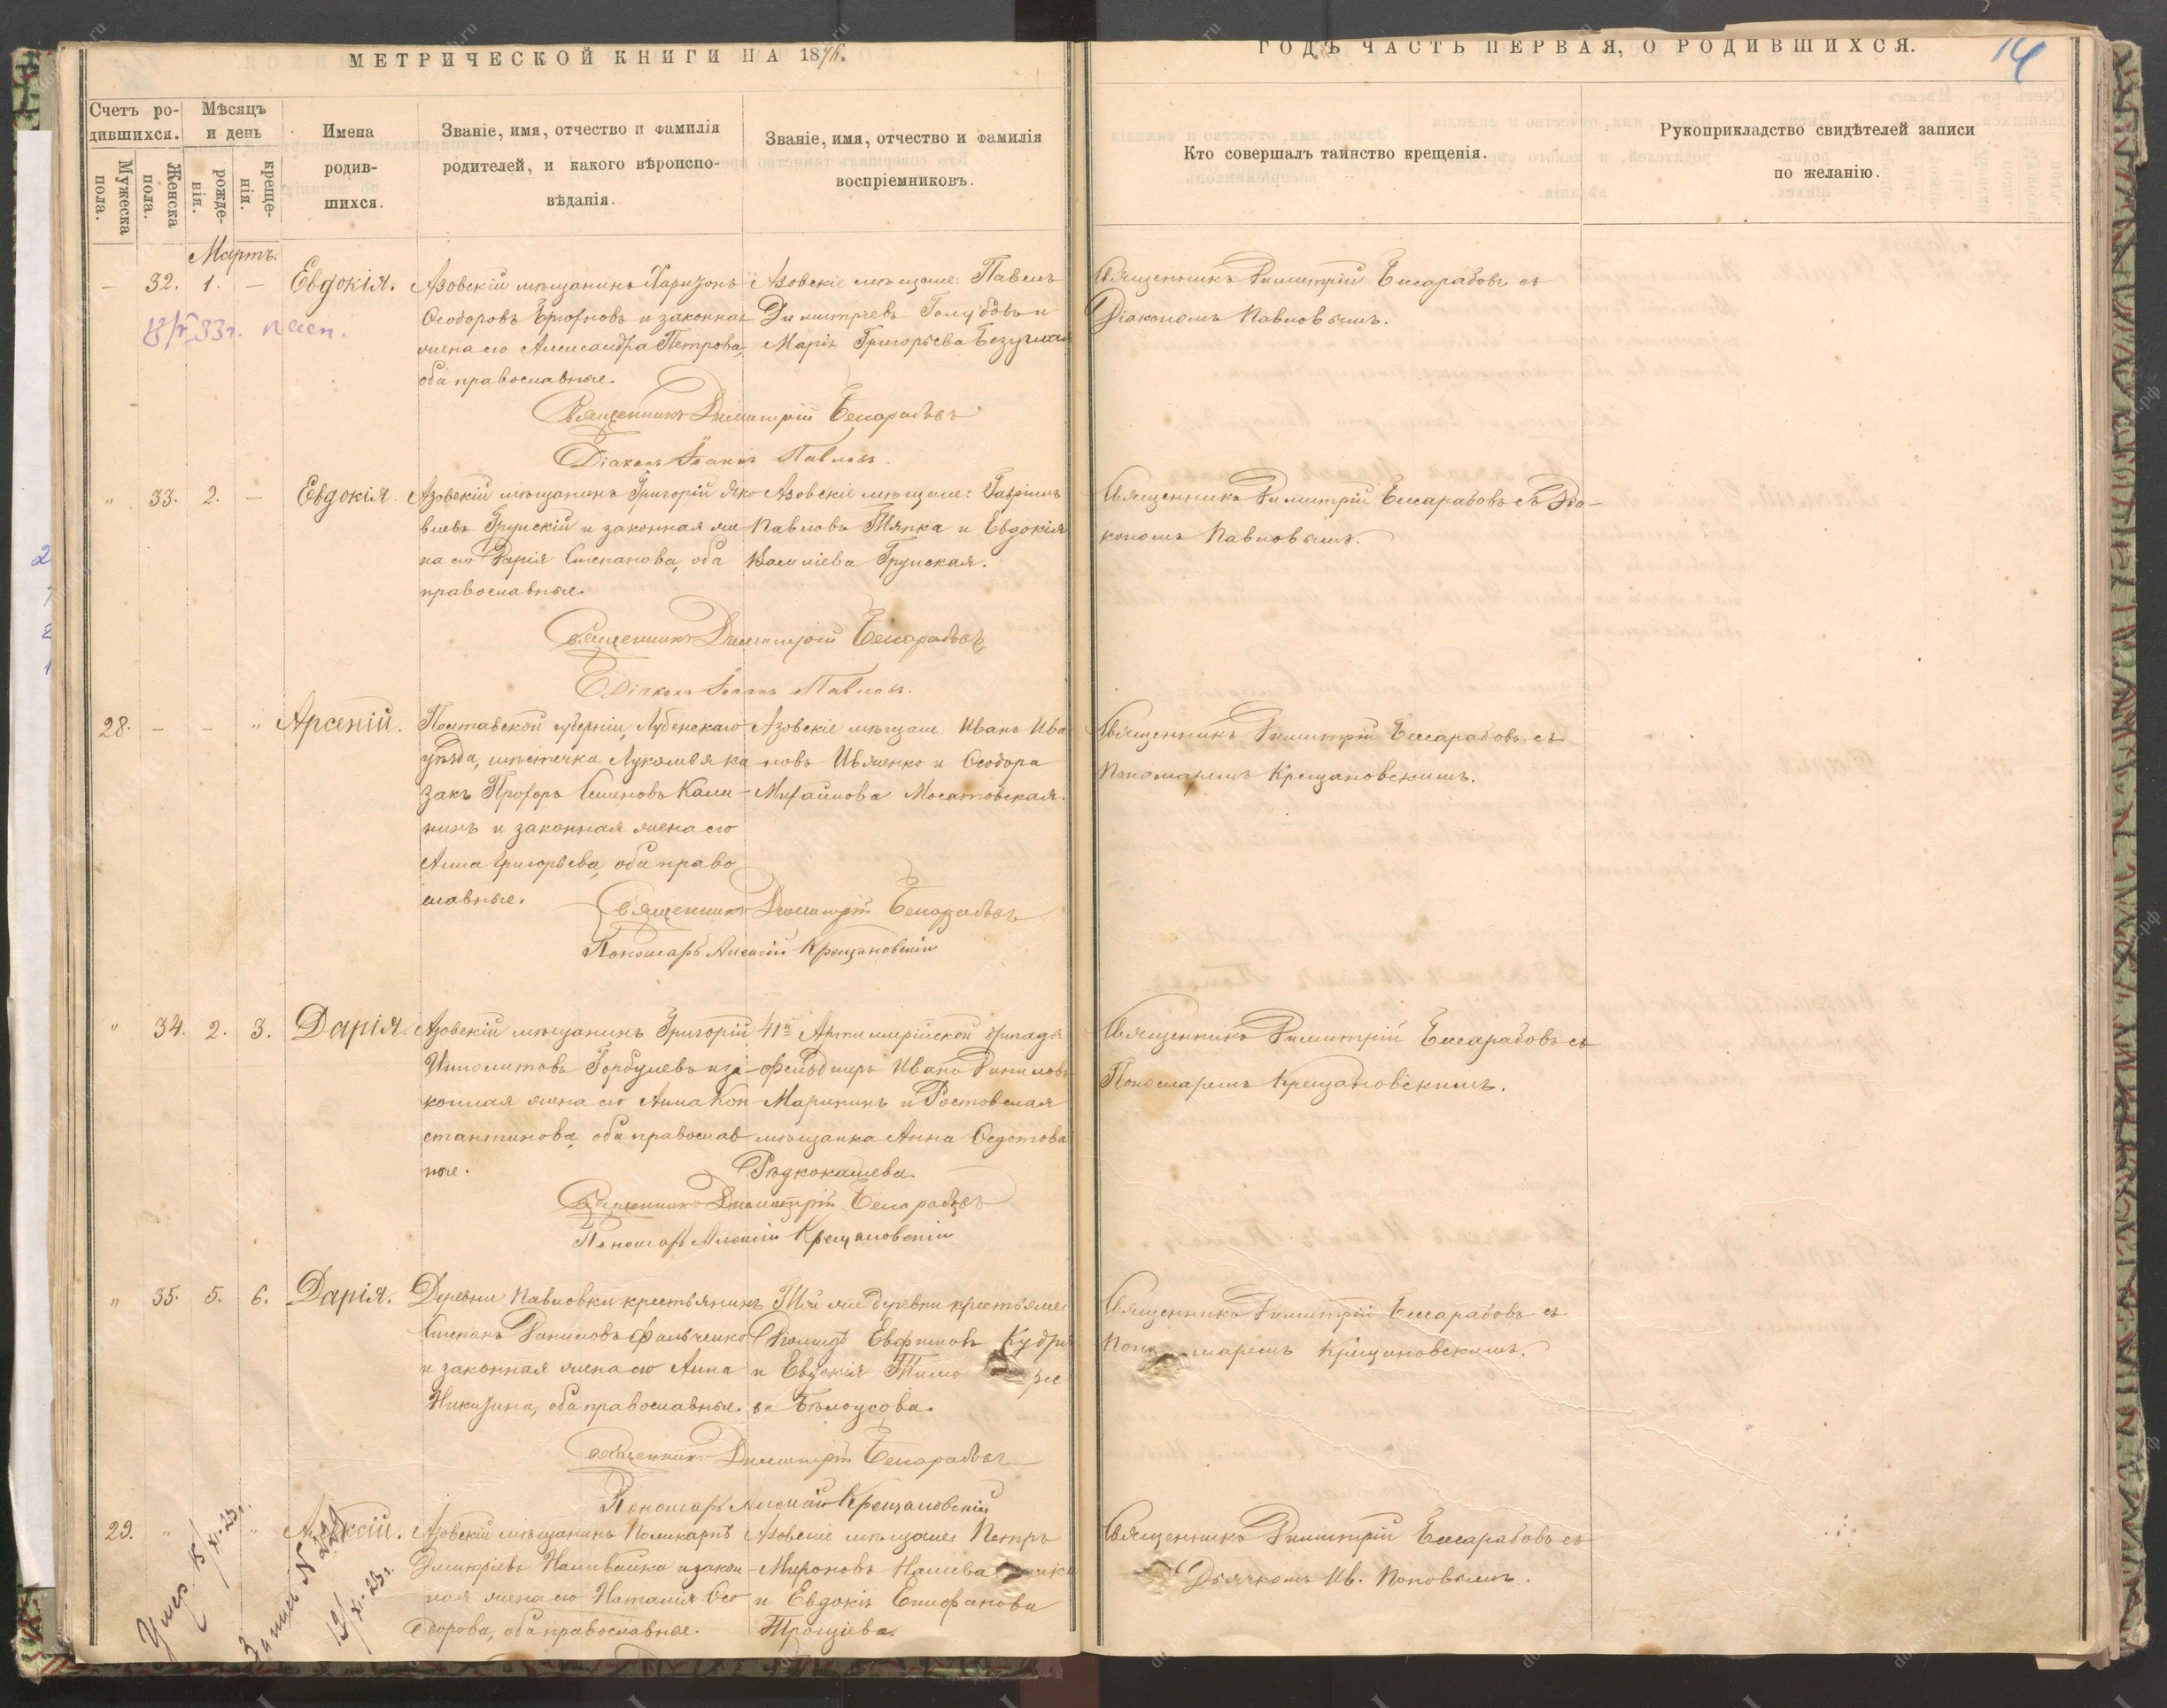 МЕТРИЧЕСКОЙ КНИГИ НА 1876.
ГОДЪ ЧАСТЬ ПЕРВАЯ, О РОДИВШИХСЯ.
14
Счетъ ро-
дившихся.
Мужеска
пола.
Женска
пола.
Мѣсяцъ
и день
рожде-
нія.
креще-
нія.
Имена
родив-
шихся.
Званіе, имя, отчество и фамилія
родителей, и какого вѣроиспо-
вѣданія.
Званіе, имя, отчество и фамилія
воспріемниковъ.
Кто совершалъ таинство крещенія.
Рукоприкладство свидѣтелей записи
по желанію.
Мартъ.
— 32. 1. — Евдокія.
33г. пасп.
Азовскій мѣщанинъ Харитонъ
Ѳеодоровъ и законная
жена его Александра Петрова,
оба православные.
Азовскіе мѣщане: Павелъ
Димитріевъ Голубовъ и
Марія Григорьева
Священникъ Димитрій Бессарабовъ съ
Діакономъ Павловымъ.
Священникъ Димитрій Бессарабовъ
Діаконъ Іоаннъ Павловъ.
" 33. 2. — Евдокія.
Азовскій мѣщанинъ Григорій Яко
влевъ Грунскій и законная же
на его Дарія Степанова, оба
православные.
Азовскіе мѣщане: Гавріилъ
Павловъ Тяпка и Евдокія
Василіева Грунская.
Священникъ Димитрій Бессарабовъ съ Діа-
кономъ Павловымъ.
Священникъ Димитрій Бессарабовъ
Діаконъ Іоаннъ Павловъ.
28. — — " Арсеній.
Полтавской губерніи, Лубенскаго
уѣзда, мѣстечка Лукомья ка
закъ Прохоръ Семеновъ Кали-
нинъ и законная жена его
Анна Григорьева, оба право
славные.
Азовскіе мѣщане Иванъ Ива
новъ Ивженко и Ѳеодора
Михайлова Мосатовская.
Священникъ Димитрій Бессарабовъ съ
Пономаремъ Крещановскимъ.
Священникъ Димитрій Бессарабовъ
Пономарь Алексій Крещановскій
" 34. 2. 3. Дарія.
Азовскій мѣщанинъ Григорій
Ипполитовъ Горбулевъ и за-
конная жена его Анна Кон-
стантинова, оба православ
ные.
41й Артиллерійской бригады
фельдшеръ Иванъ Даниловъ
Маринихъ и Ростовская
мѣщанка Анна Ѳедотова
Рѣдкокашева.
Священникъ Димитрій Бессарабовъ съ
Пономаремъ Крещановскимъ.
Священникъ Димитрій Бессарабовъ
Пономарь Алексій Крещановскій
" 35. 5. 6. Дарія.
Деревни Павловки крестьянинъ
Степанъ Даниловъ Фальченко
и законная жена его Анна
Никитина, оба православные.
Той же деревни крестьяне:
Діомидъ Евфимовъ
и Евдокія
ва Бѣлоусова.
Священникъ Димитрій Бессарабовъ съ
Пономаремъ Крещановскимъ.
Священникъ Димитрій Бессарабовъ
Пономарь Алексій Крещановскій
29. " " Алексій.
Умер 15/XI-23г.
Запись N
19/XI-23г.
Азовскій мѣщанинъ Поликарпъ
Дмитріевъ Наливайка и закон-
ная жена его Наталія Ѳео
дорова, оба православные.
Азовскіе мѣщане Петръ
Мироновъ
и Евдокія Епифанова
Трощіева.
Священникъ Димитрій Бессарабовъ съ
Дьячкомъ Ив. Поповымъ.